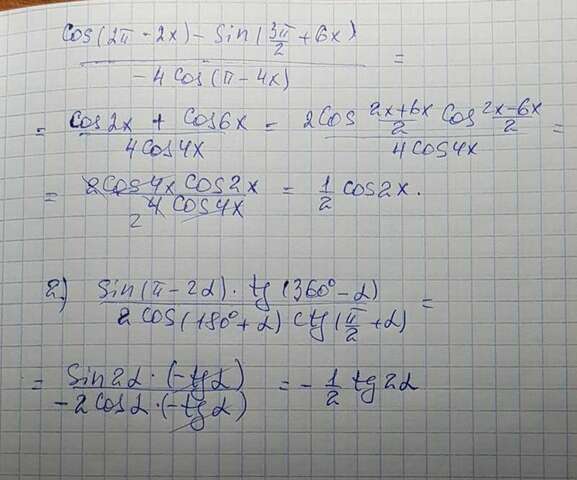 cos(2π - 2x) - sin(3π/2 + 6x) / -4 cos(π - 4x) =
= cos2x + cos6x / 4cos4x = 2cos 2x+6x/2 cos 2x-6x/2 / 4cos4x =
= 2cos4x cos2x / 4 cos4x 2 = 1/2 cos2x.
2) sin(π - 2α) · tg(360° - α) / 2cos(180° + α) ctg(π/2 + α) =
= sin2α · (-tgα) / -2cosα · (-tgα) = - 1/2 tg2α